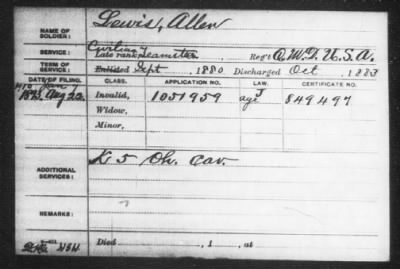 NAME OF SOLDIER: Lewis, Allen
SERVICE: Civilian Teamster
Late rank, Reg't Q.M.D. U.S.A.
TERM OF SERVICE: Enlisted Sept, 1880 Discharged Oct, 1883
DATE OF FILING. CLASS. APPLICATION NO. LAW. CERTIFICATE NO.
Aug 22 Invalid, 1051959 age J 849497
Widow,
Minor,
ADDITIONAL SERVICES: K 5 Oh. Cav.
REMARKS:
Died , 1 , at